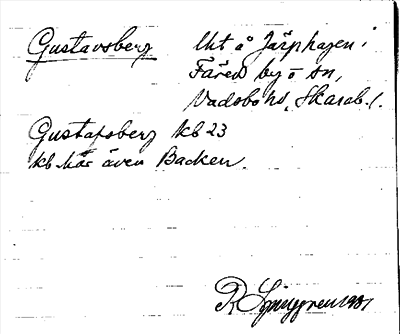 Gustavsberg Uht å Järphagen i
Färeds by o sn,
Vadsbo hd, Skarab. l.
Gustafsberg kb 23
kb här även Backen.
R Ljunggren 1981